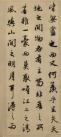 無盡也而又何羨乎且夫天
地之間物各有主苟非吾之所
有雖一毫而莫取惟江上之清
風與山間之明月耳得之而